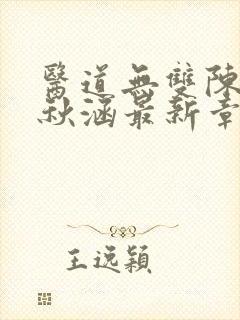 醫道無雙陳
秋涵最新章
王逸穎